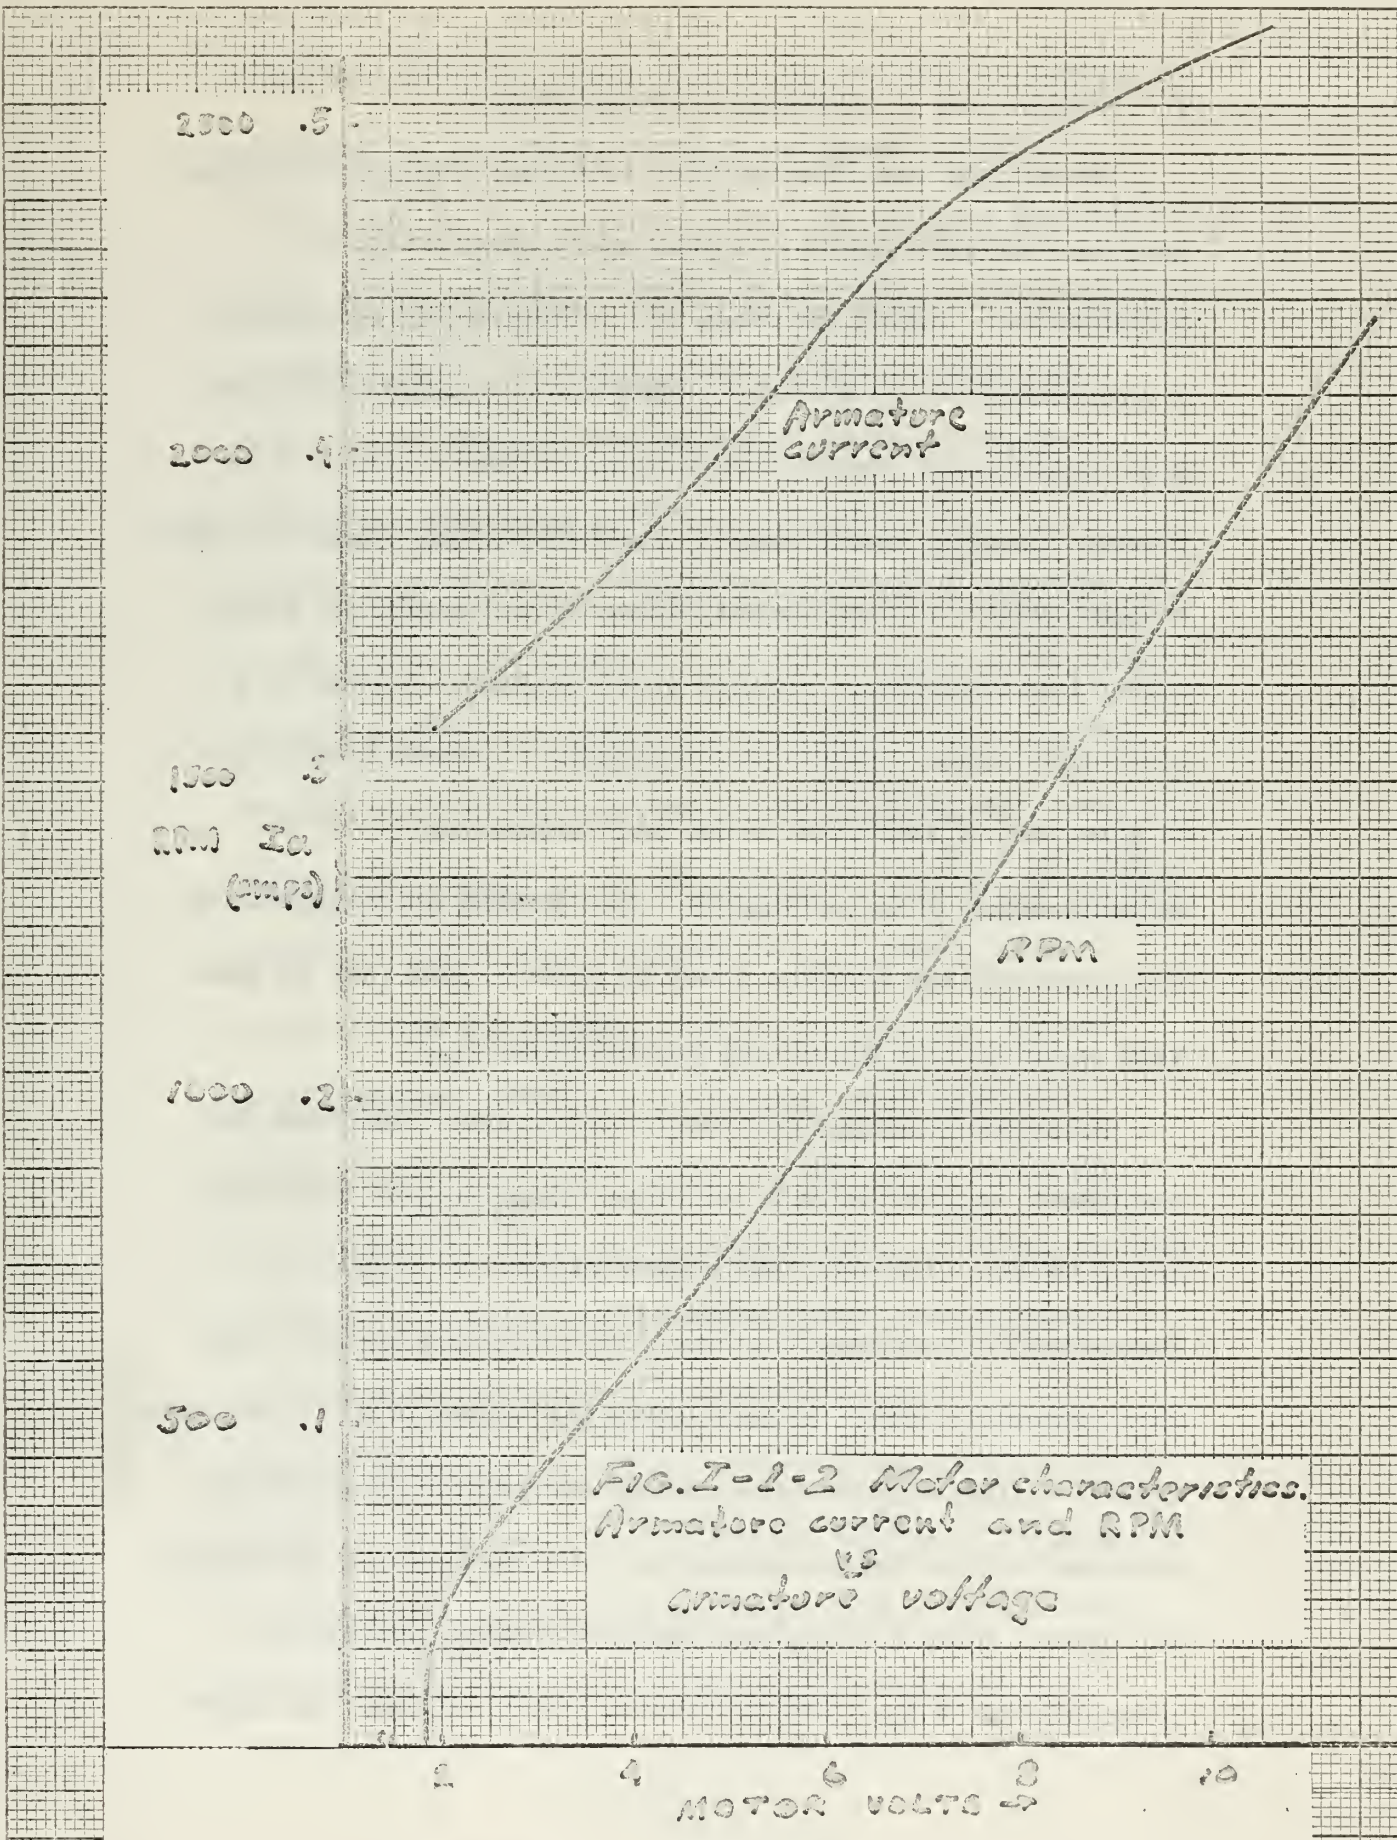 2500 .5
2000 .4
1500 .3
RPM Ia
(amps)
1000 .2
500 .1
Armature
current
RPM
FIG. I-1-2 Motor characteristics.
Armature current and RPM
vs
armature voltage
2 4 6 8 10
MOTOR VOLTS →